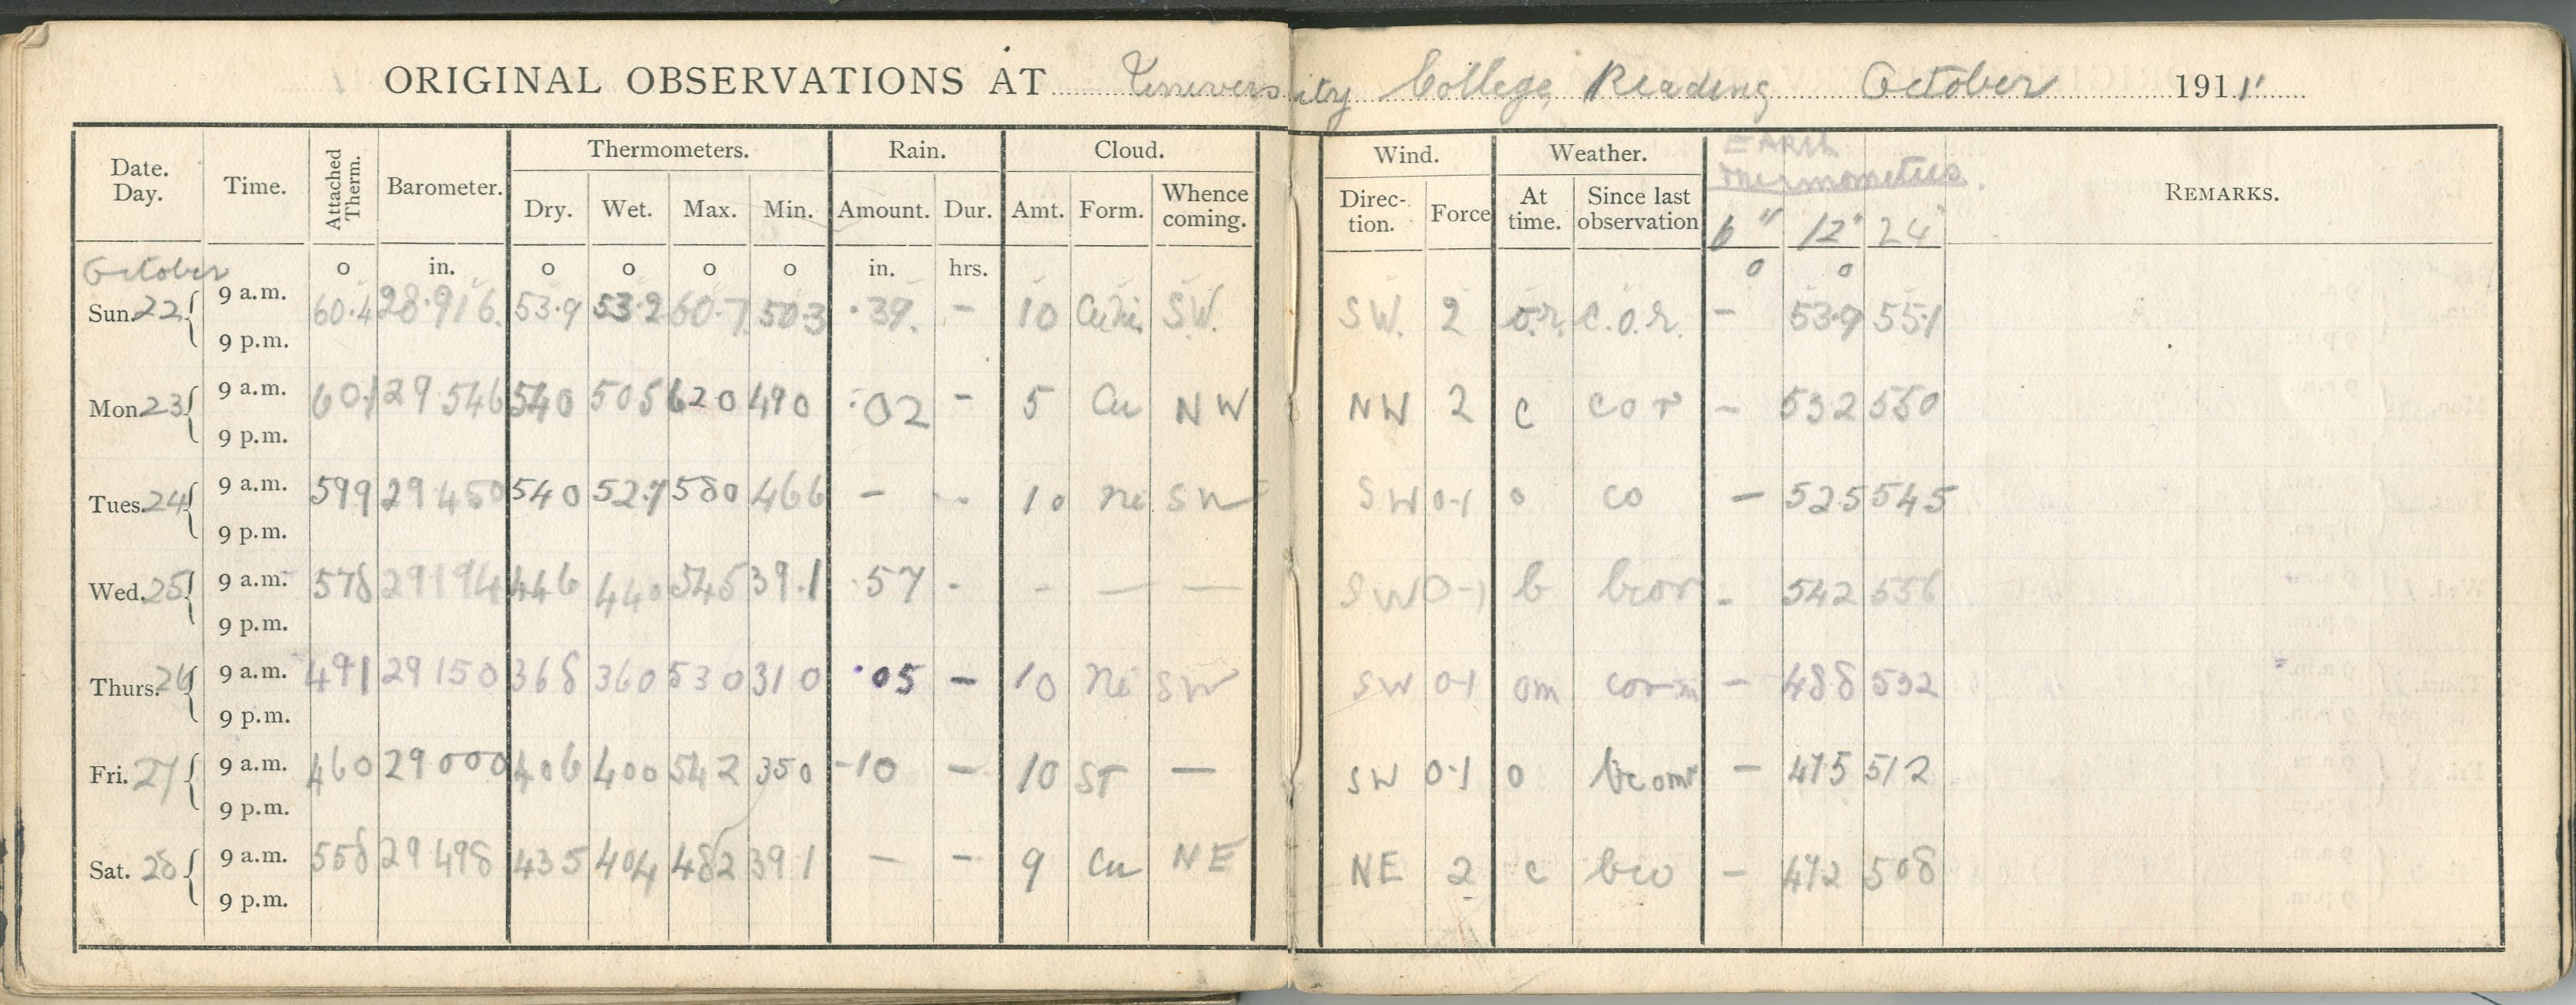 ORIGINAL OBSERVATIONS AT University College Reading October 1911
Date. Day. Time. Attached Therm. Barometer. Thermometers. Dry. Wet. Max. Min. Rain. Amount. Dur. Cloud. Amt. Form. Whence coming. Wind. Direc-tion. Force Weather. At time. Since last observation EARTH Thermometers. 6" 12" 24" REMARKS.
October o in. o o o o in. hrs. o o
Sun. 22 { 9 a.m. 60.4 28.916 53.9 53.2 60.7 50.3 .39 - 10 CuNi SW. SW. 2 o.r. c.o.r. - 53.9 55.1
9 p.m.
Mon. 23 { 9 a.m. 60.1 29 546 540 505 620 490 .02 - 5 Cu NW NW 2 c cor - 532 550
9 p.m.
Tues. 24 { 9 a.m. 599 29 450 540 52.7 580 466 - - 10 Ni SW SW 0-1 o co - 525 545
9 p.m.
Wed. 25 { 9 a.m. 578 29194 446 440 545 39.1 .57 - - — — SW 0-1 b bcor - 542 556
9 p.m.
Thurs. 26 { 9 a.m. 491 29 150 368 360 530 310 .05 - 10 Ni SW SW 0-1 om corm - 488 532
9 p.m.
Fri. 27 { 9 a.m. 460 29 000 406 400 542 350 -10 - 10 ST — SW 0-1 o bcomr - 475 512
9 p.m.
Sat. 28 { 9 a.m. 558 29 498 435 404 482 391 - - 9 Cu NE NE 2 c bco - 472 508
9 p.m.